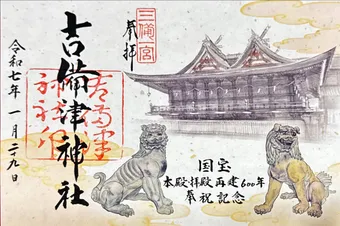 三備一宮
奉拝
吉備津神社
令和七年一月二九日
国宝
本殿拝殿再建600年
奉祝記念